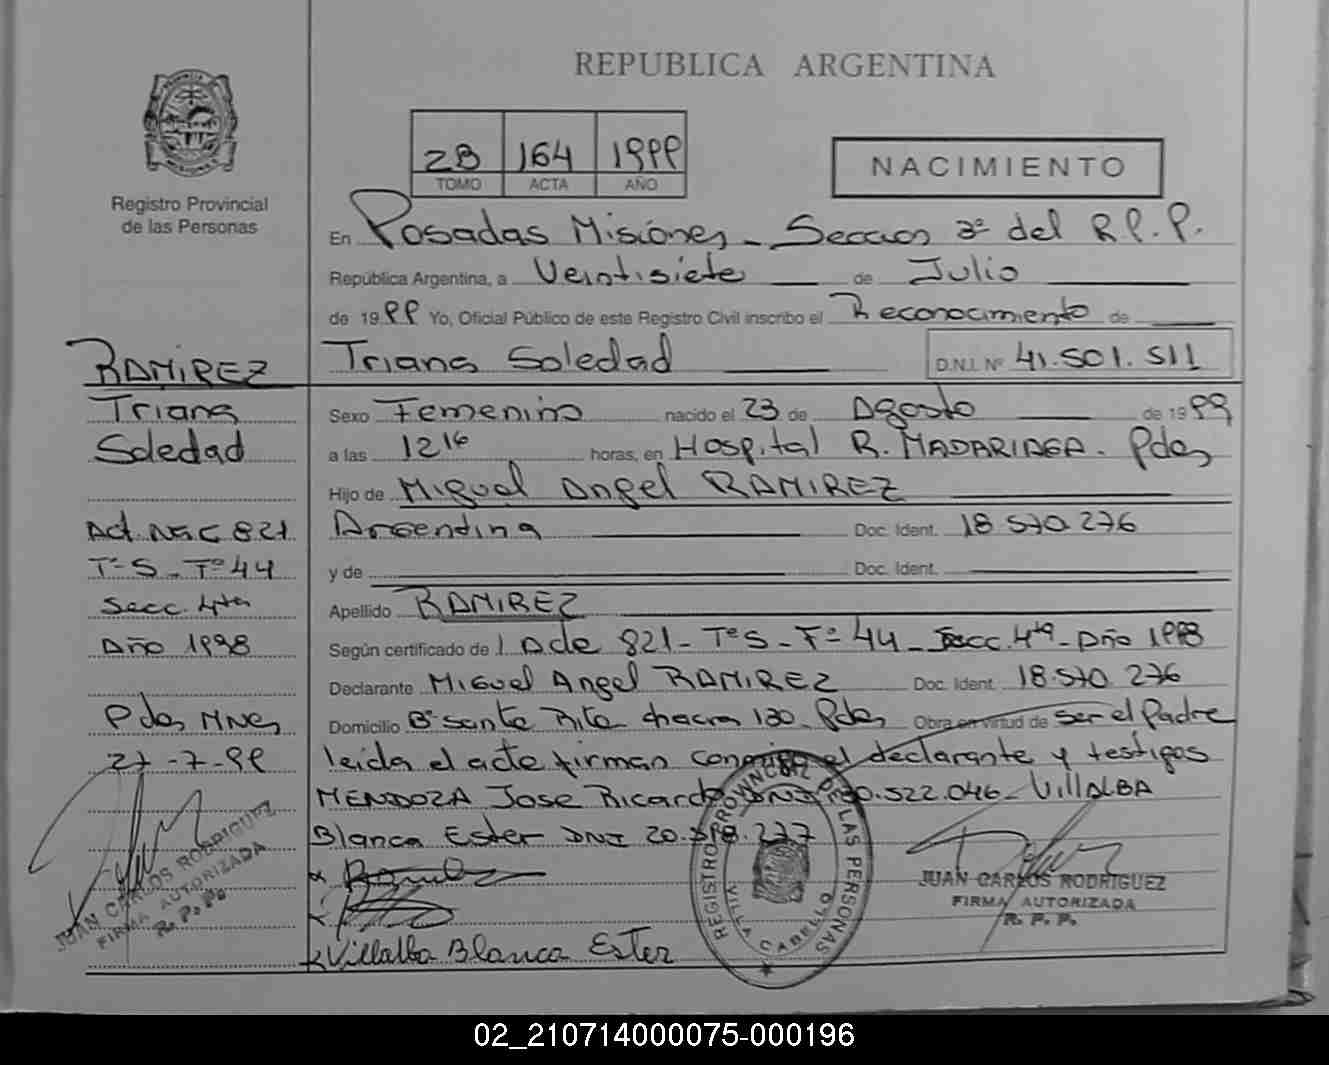 REPUBLICA ARGENTINA
2B 164 1999
TOMO ACTA AÑO
NACIMIENTO
Registro Provincial
de las Personas
En Posadas Misiones - Seccion 2ª del R.P.P.
República Argentina, a Veintisiete de Julio
de 1999 Yo, Oficial Público de este Registro Civil inscribo el Reconocimiento de
Triana Soledad D.N.I. Nº 41.501.511
RAMIREZ
Triana
Soledad
Sexo Femenino nacido el 23 de Agosto de 1999
a las 12 16 horas, en Hospital R. MADARIAGA. Pdas
Hijo de Miguel Angel RAMIREZ
Argentina Doc. Ident. 18.570.276
y de Doc. Ident.
Apellido RAMIREZ
Según certificado de Acta 821 - Tº 5 - Fº 44 - Secc. 4ta - Año 1998
Declarante Miguel Angel RAMIREZ Doc. Ident. 18.570.276
Domicilio Bº Santa Rita chacra 130 Pdas Obra en virtud de ser el Padre
leida el acta firman conmigo el declarante y testigos
MENDOZA Jose Ricardo DNI 522.046 - VillALBA
Blanca Ester DNI 20. 277
Villalba Blanca Ester
Act. Nac 821
Tº 5 - Fº 44
Secc. 4ta
Año 1998
Pdas Mnes
27-7-99
JUAN CARLOS RODRIGUEZ
FIRMA AUTORIZADA
R. P. P.
REGISTRO PROVINCIAL DE LAS PERSONAS
VILLA CABELLO
JUAN CARLOS RODRIGUEZ
FIRMA AUTORIZADA
R. P. P.
02_210714000075-000196